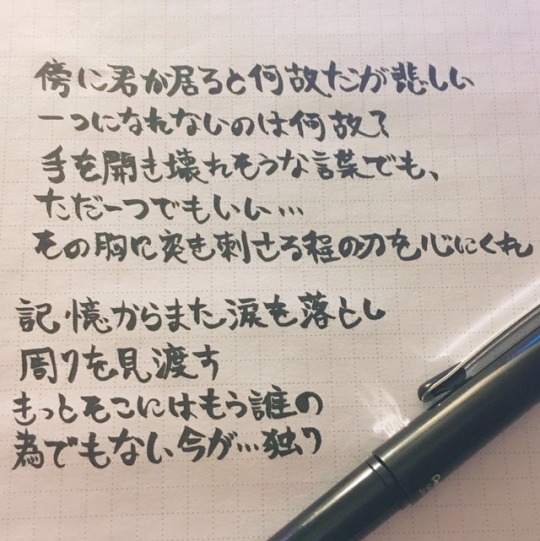 傍に君が居ると何故だが悲しい
一つになれないのは何故?
手を開き壊れそうな言葉でも、
ただ一つでもいい…
その胸に突き刺さる程の刃を心にくれ
記憶からまた涙を落とし
周りを見渡す
きっとそこにはもう誰の
為でもない今が…独り